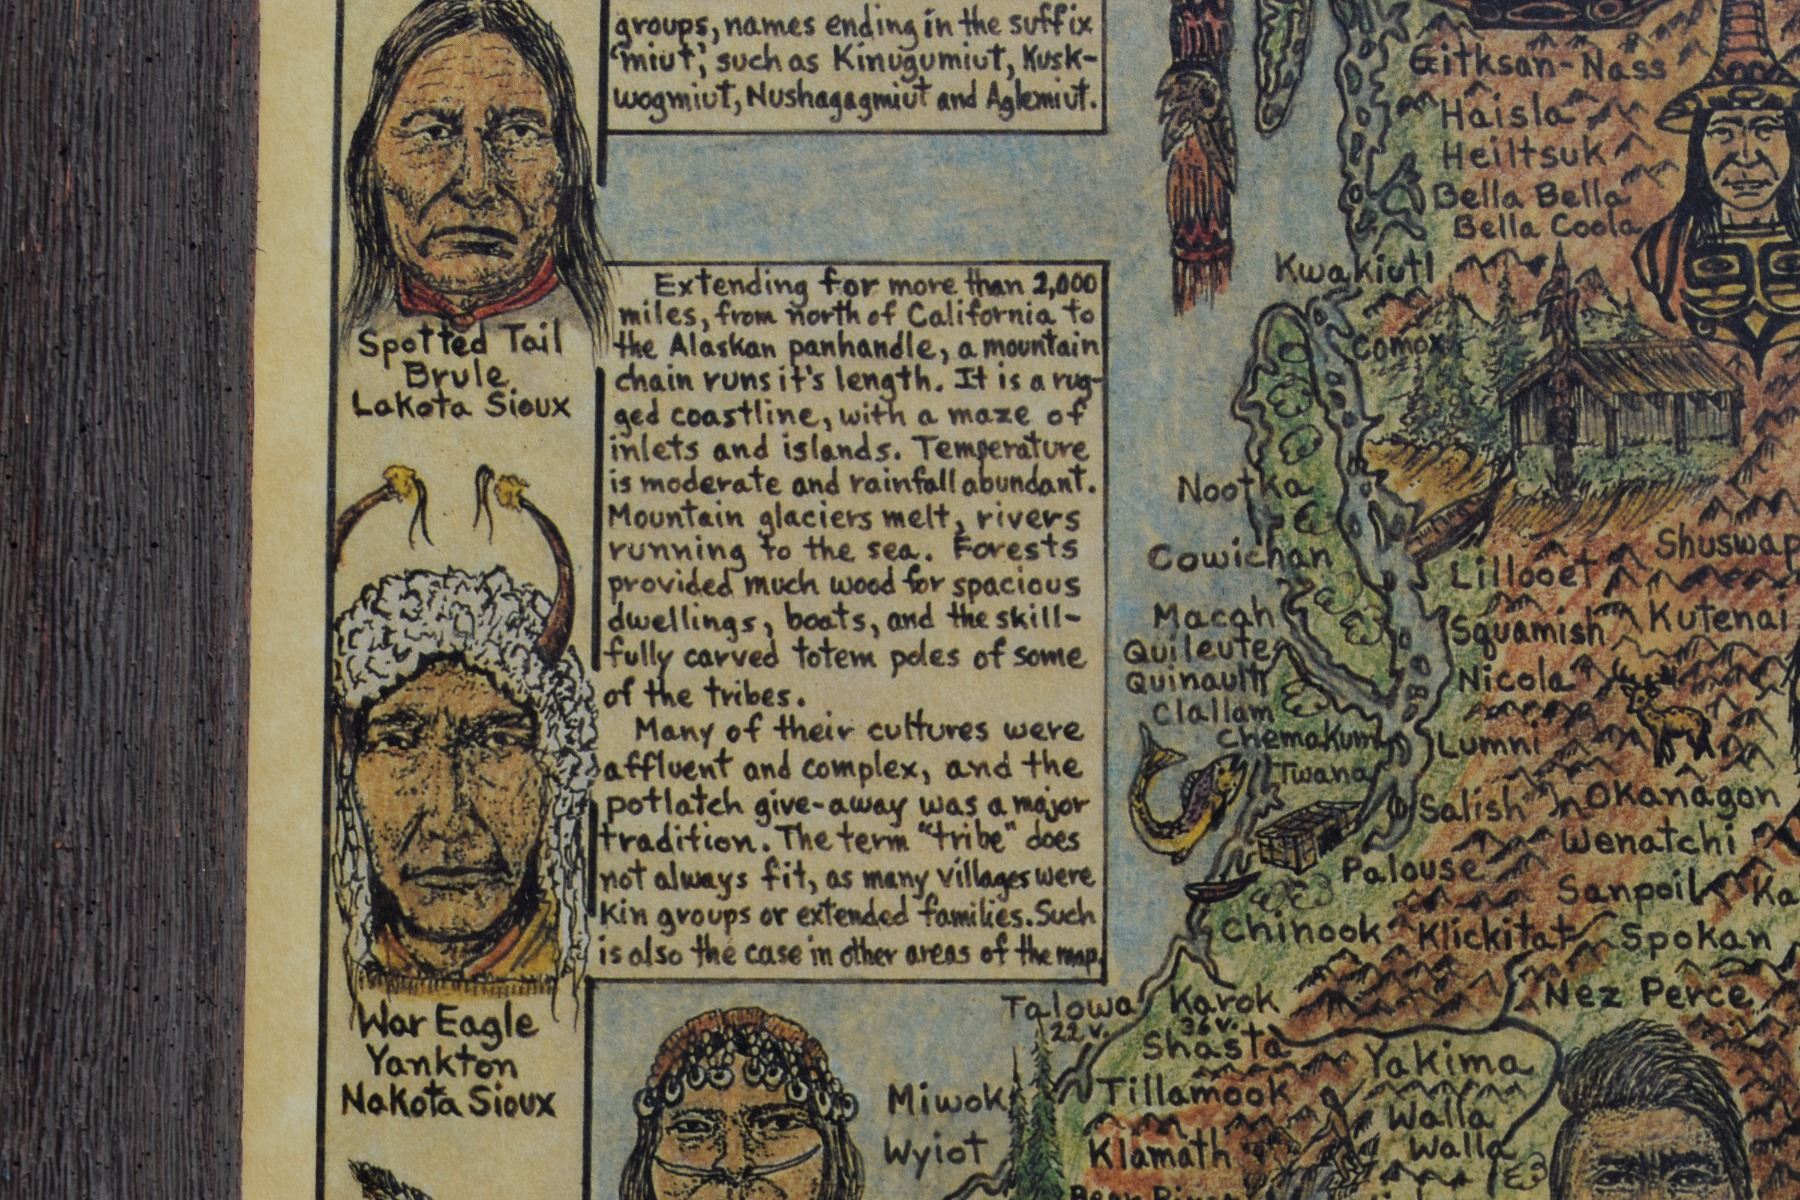 groups, names ending in the suffix
'miut', such as Kinugumiut, Kusk-
wogmiut, Nushagagmiut and Aglemiut.
Spotted Tail
Brule
Lakota Sioux
War Eagle
Yankton
Nakota Sioux
Extending for more than 2,000
miles, from north of California to
the Alaskan panhandle, a mountain
chain runs it's length. It is a rug-
ged coastline, with a maze of
inlets and islands. Temperature
is moderate and rainfall abundant.
Mountain glaciers melt, rivers
running to the sea. Forests
provided much wood for spacious
dwellings, boats, and the skill-
fully carved totem poles of some
of the tribes.
Many of their cultures were
affluent and complex, and the
potlatch give-away was a major
tradition. The term "tribe" does
not always fit, as many villages were
kin groups or extended families. Such
is also the case in other areas of the map.
Gitksan-Nass
Haisla
Heiltsuk
Bella Bella
Bella Coola
Kwakiutl
Comox
Nootka
Cowichan
Shuswap
Lillooet
Macah
Squamish
Kutenai
Quileute
Quinault
Nicola
Clallam
Chemakum
Lumni
Twana
Salish
Okanagon
Wenatchi
Palouse
Sanpoil
Ka
Chinook
Klickitat
Spokan
Nez Perce
Talowa
22 v.
Karok
36 v.
Shasta
Yakima
Miwok
Tillamook
Walla
Walla
Wyiot
Klamath
Bear River